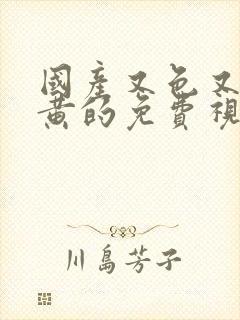 國產又色又
黃的免費視
川島芳子